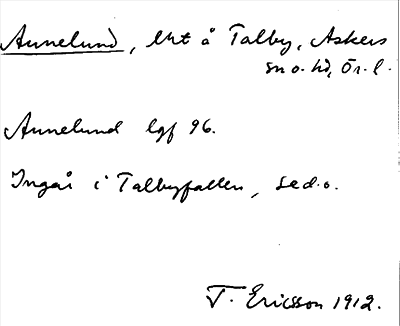 Annelund, lht å Talby, Askers
sn o. hd, Ör. l.
Annelund lgf 96.
Ingår i Talbyfallen, se d. o.
T. Ericsson 1912.